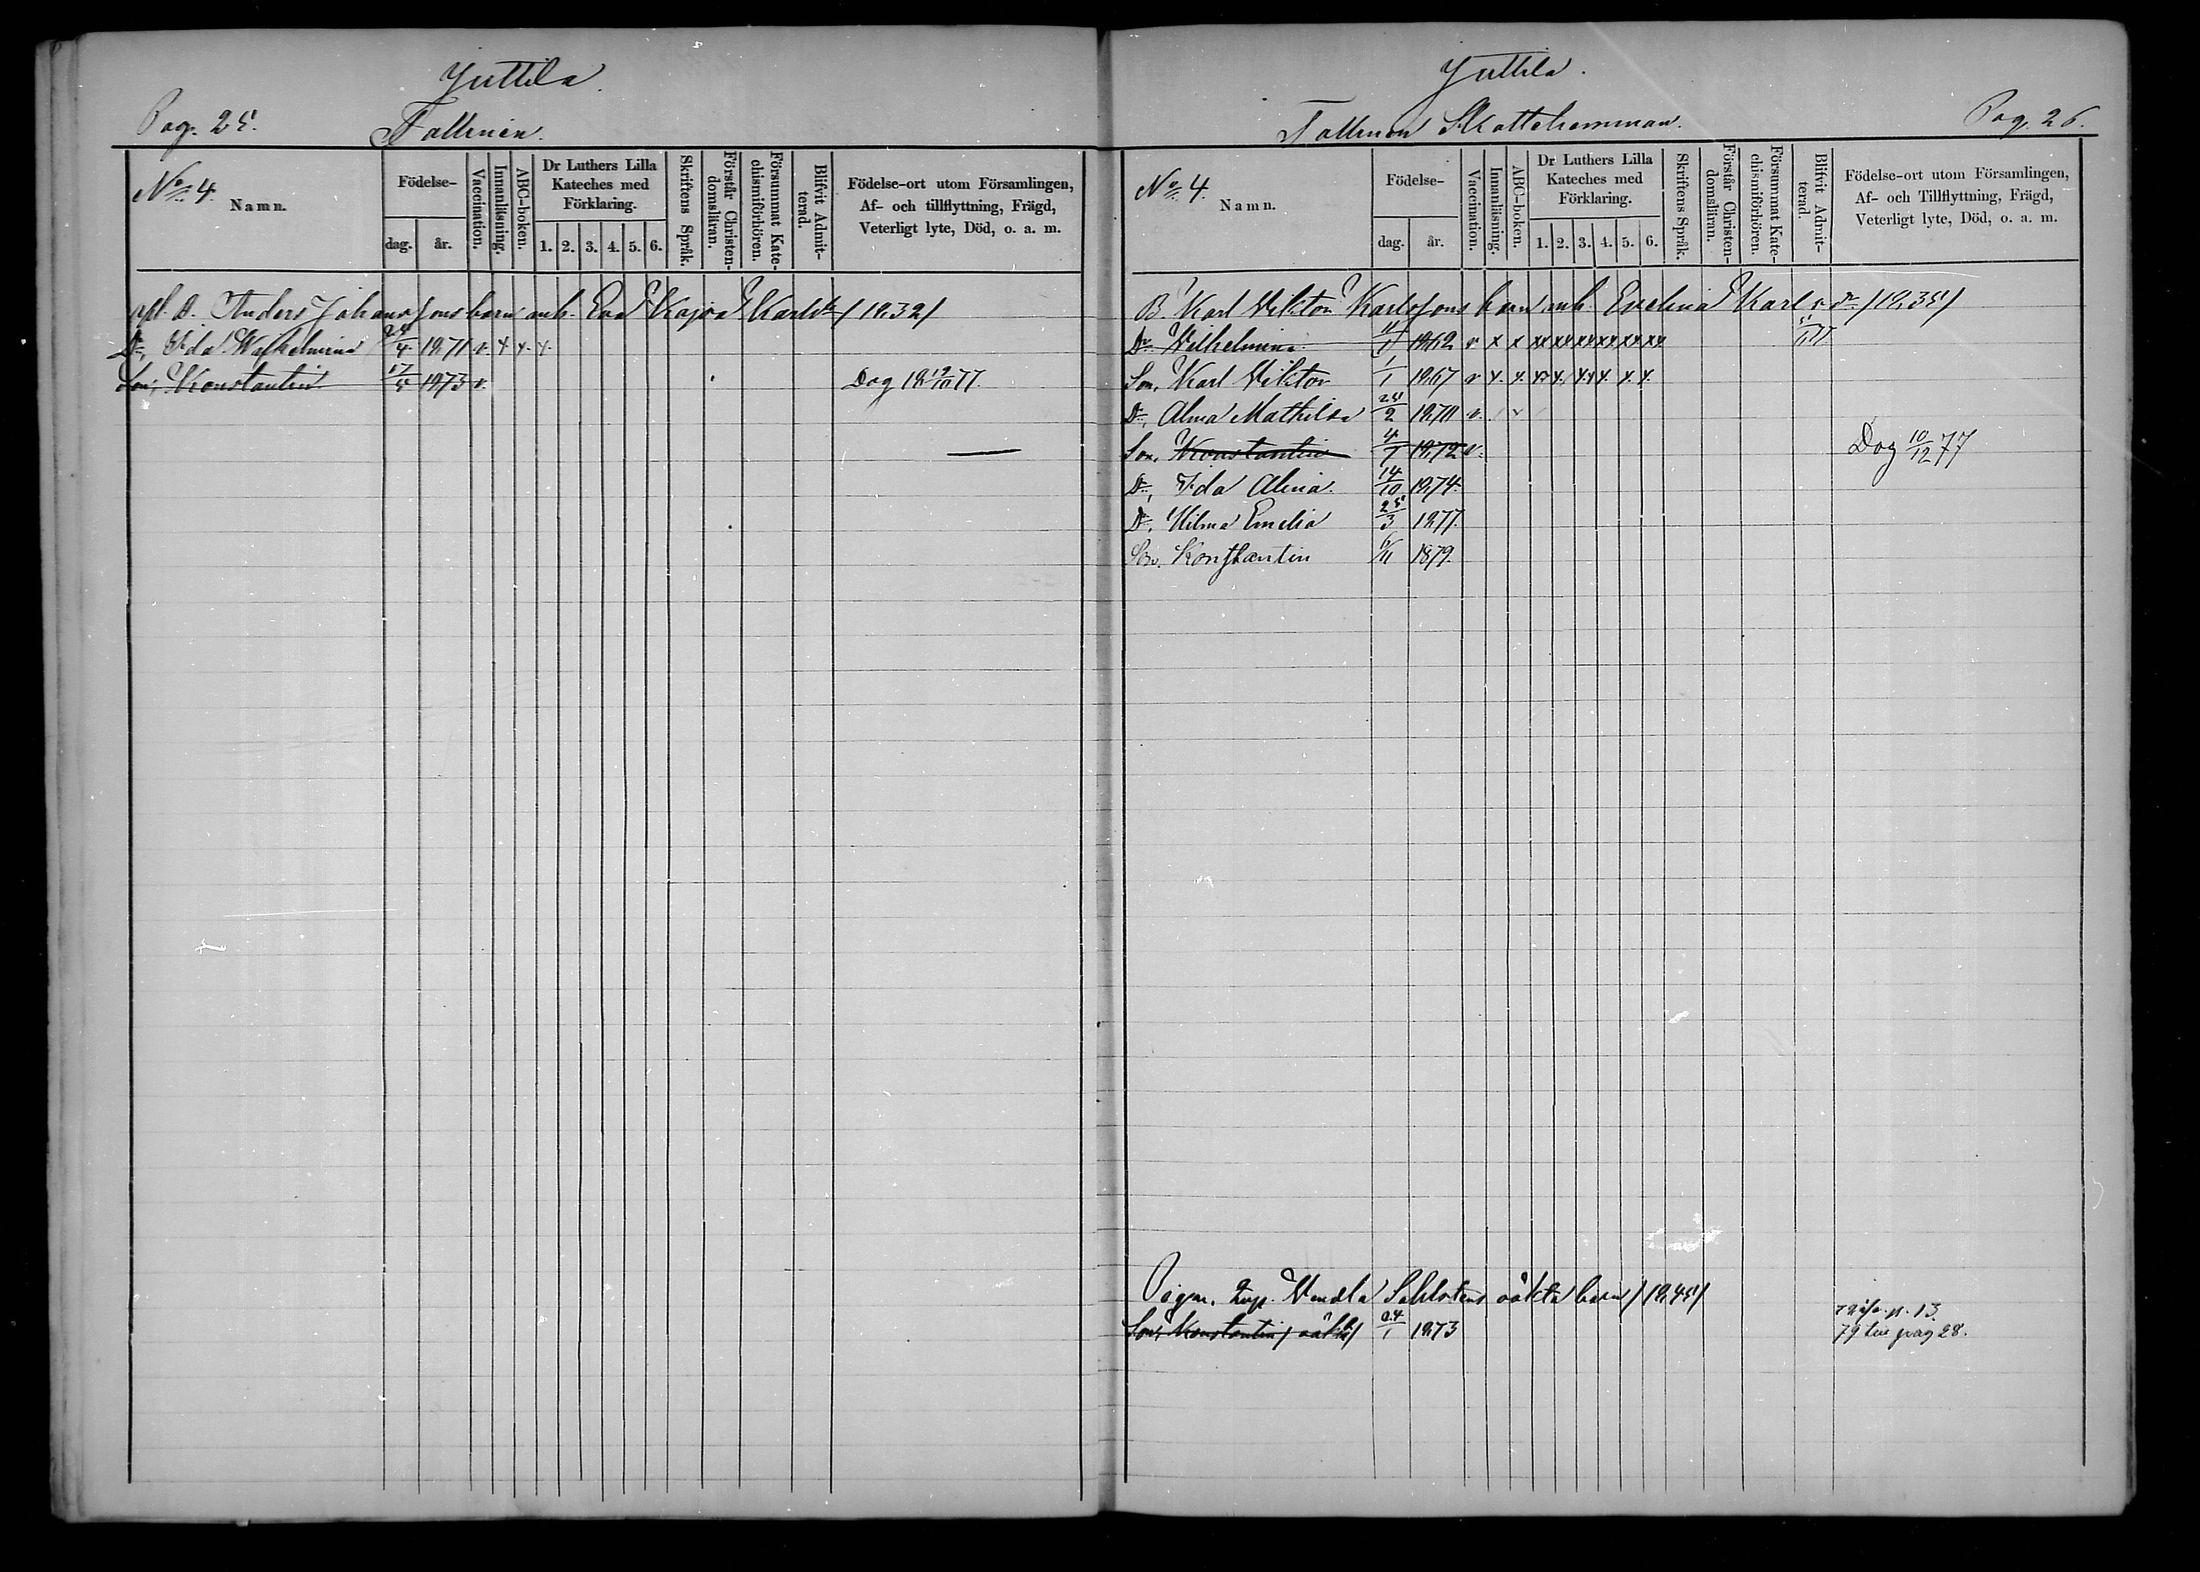 Juttila.
Pag. 25.
Tallinen.
No 4.
Namn.
Födelse-
dag.
år.
Vaccination.
Innanläsning.
ABC-boken.
Dr Luthers Lilla
Kateches med
Förklaring.
1. 2. 3. 4. 5. 6.
Skriftens Språk.
Förstår Christen-
domsläran.
Försummat Kate-
chismiförhören.
Blifvit Admit-
terad.
Födelse-ort utom Församlingen,
Af- och tillflyttning, Frägd,
Veterligt lyte, Död, o. a. m.
Anders Johanssons barn m.h. Eva Kajsa Karlsdr / 1832 /
Dr, Ida Wilhelmina 24/4 1871 v. x x x
Son, Konstantin 17/5 1873 v. Dog 18 19/10 77.
Juttila.
Tallinen Skattehemman.
Pag. 26.
No 4.
Namn.
Födelse-
dag.
år.
Vaccination.
Innanläsning.
ABC-boken.
Dr Luthers Lilla
Kateches med
Förklaring.
1. 2. 3. 4. 5. 6.
Skriftens Språk.
Förstår Christen-
domsläran.
Försummat Kate-
chismiförhören.
Blifvit Admit-
terad.
Födelse-ort utom Församlingen,
Af- och Tillflyttning, Frägd,
Veterligt lyte, Död, o. a. m.
B. Karl Viktor Karlssons barn m.h. Evelina Karlsdr / 1835 /
Dr. Wilhelmina 1862 v x x xx xx xx xx xx xx
Son, Karl Viktor 1/1 1867 v x. x. xx x. xx x. x. x.
Dr, Alma Mathilda 25/2 1870 v.
Son. Konstantin 4/1 1872 v. Dog 10/12 77
Dr, Ida Alina. 14/10 1874.
Dr. Hilma Emelia 25/3 1877.
Son. Konstantin 6/11 1879.
Pigm. Wendla Sahlstens oäkta barn / 1845 /
Son, Konstantin / oäkta / 24/1 1873 p. 13.
79 se pag 28.